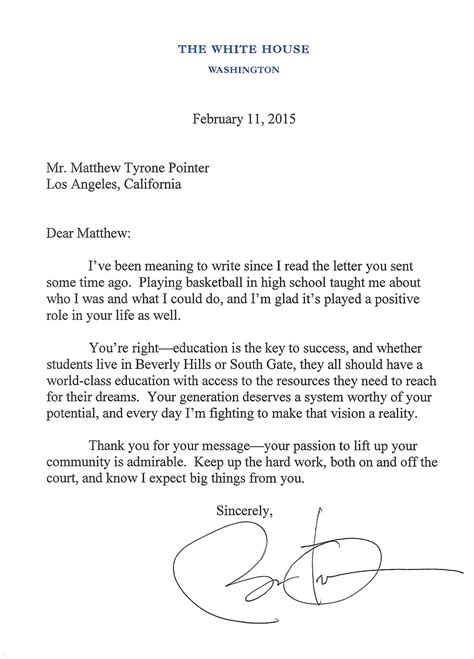 THE WHITE HOUSE
WASHINGTON
February 11, 2015
Mr. Matthew Tyrone Pointer
Los Angeles, California
Dear Matthew:
I've been meaning to write since I read the letter you sent
some time ago. Playing basketball in high school taught me about
who I was and what I could do, and I'm glad it's played a positive
role in your life as well.
You're right—education is the key to success, and whether
students live in Beverly Hills or South Gate, they all should have a
world-class education with access to the resources they need to reach
for their dreams. Your generation deserves a system worthy of your
potential, and every day I'm fighting to make that vision a reality.
Thank you for your message—your passion to lift up your
community is admirable. Keep up the hard work, both on and off the
court, and know I expect big things from you.
Sincerely,